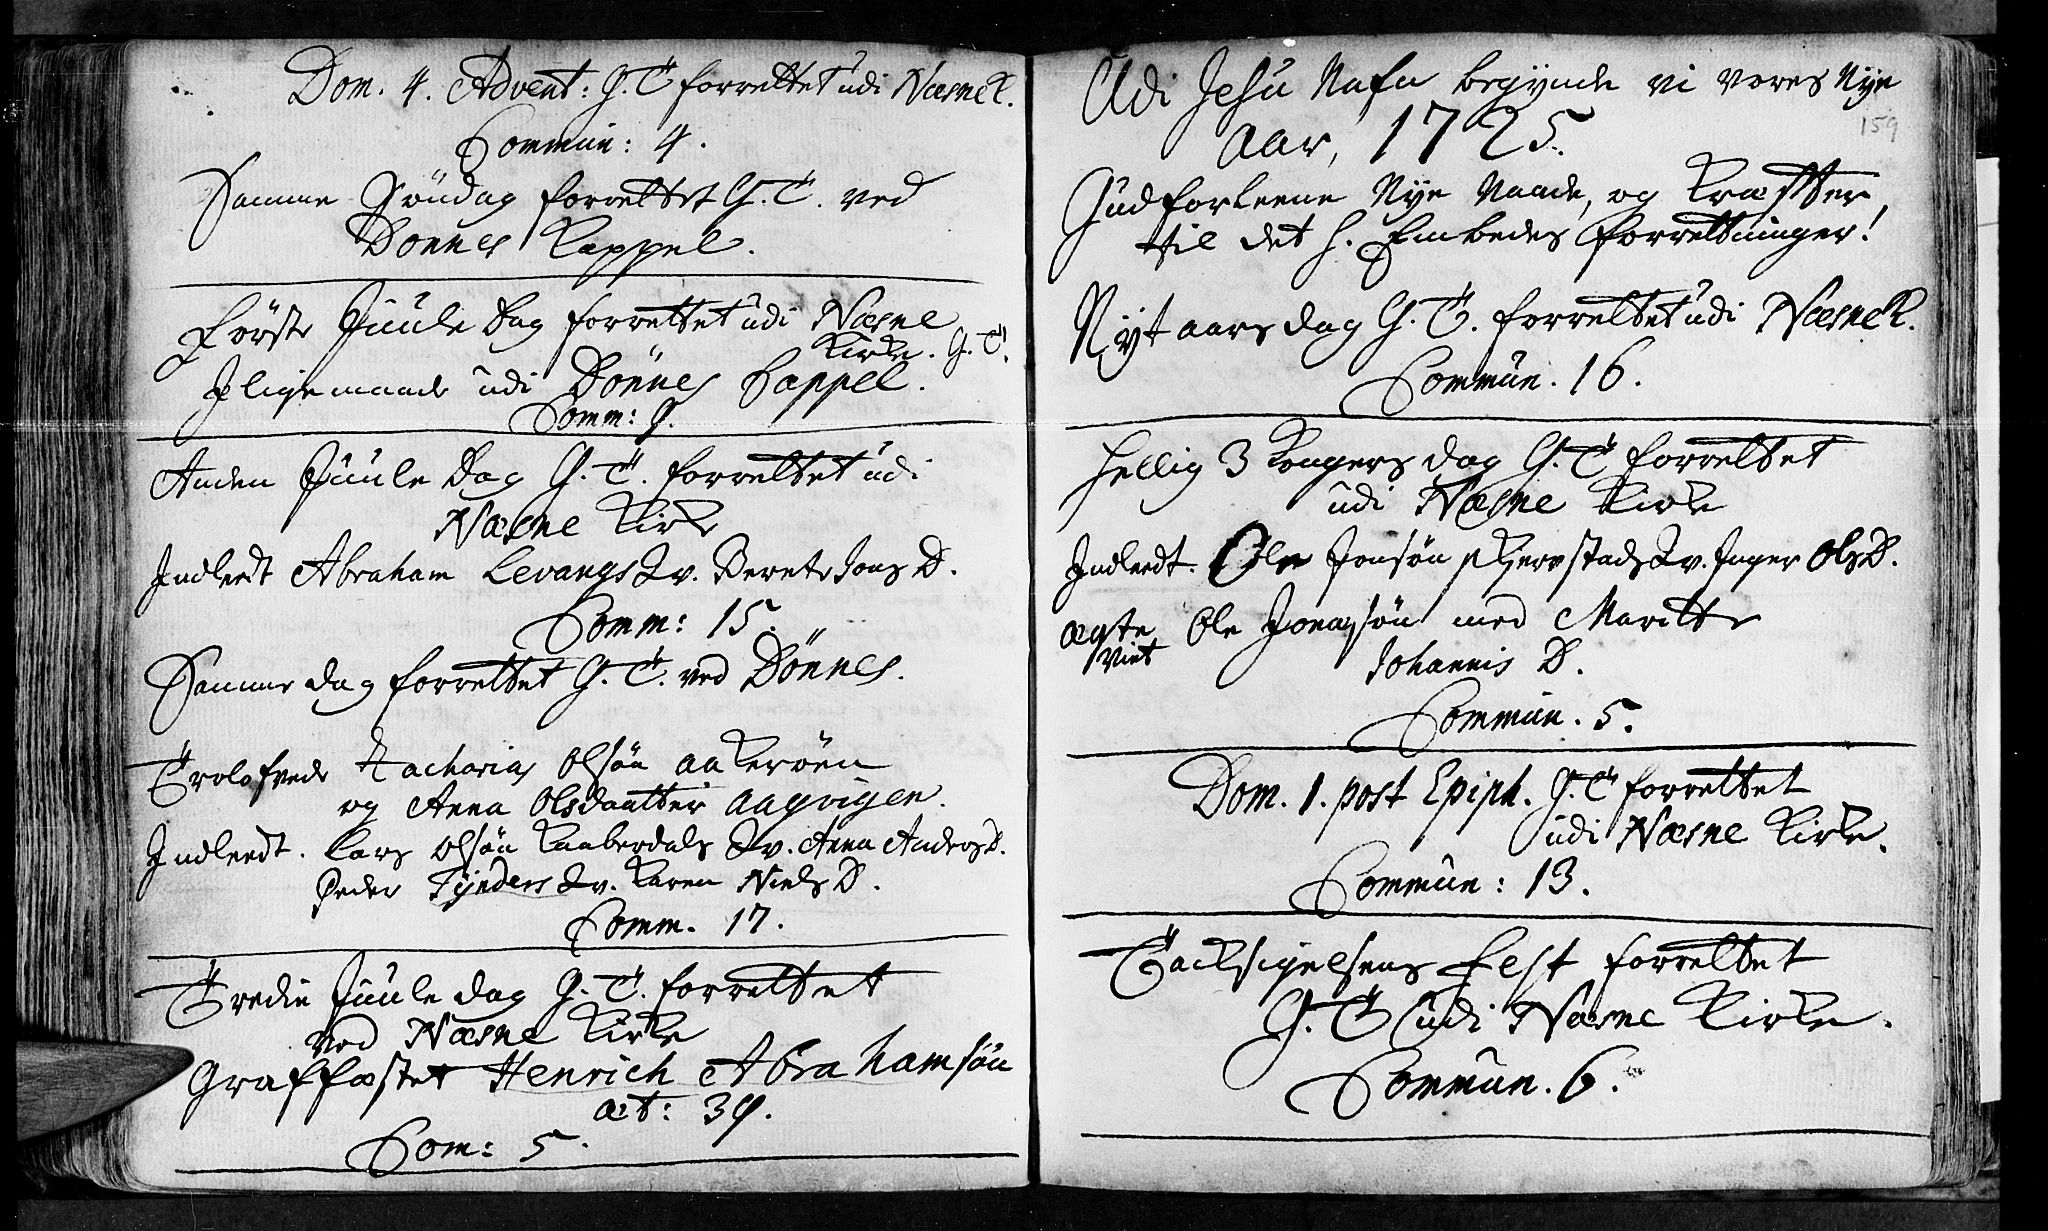 Dom. 4. Advent: G. T. forrettet udi Næsne K.
Commun: 4.
Samme Söndag forrettet G. T. ved
Dönnes Kappel.
Förste Juule Dag forrettet udi Næsne
Kirke. G. T.
Jligemaade udi Dönnes Cappel.
Comm: 9.
Anden Juule Dag G. T. forrettet udi
Næsne Kirke
Jndleedt Abraham Levangs Qv. Berete Jons D.
Comm: 15.
Samme dag forrettet G. T. ved Dönnes.
Trolofvede Zacharias Olsön Aakeröen
og Anna Olsdaatter Aagvigen.
Jndleedt. Lars Olsön Kaaberdals Qv. Anna Anders D.
Peder Tynders Qv. Karen Niels D.
Comm. 17.
Tredie Juule dag G. T. forrettet
ved Næsne Kirke
Graffæstet Henrich Abrahamsön
æt: 39.
Com: 5.
Udi Jesu Nafn begynde vi vores Nye
159
Aar, 1725.
Gud forleene Nye Naade, og Kræffter,
til det h. Embedes Forrettninger!
Nyt aars dag G. T. forrettet udi Næsne K.
Commun. 16.
Hellig 3 Kongers dag G. T. forrettet
udi Næsne Kirke
Jndleedt. Ole Jonsön Skjervstads Qv. Jnger Ols D.
ægte Ole Jonasön med Maritte
viet
Johannis D.
Commun. 5.
Dom. 1. post Epiph. G. T. forrettet
udi Næsne Kirke.
Commun: 13.
Tacksigelsens Fest forrettet
G. T. udi Næsne Kirke.
Commun. 6.